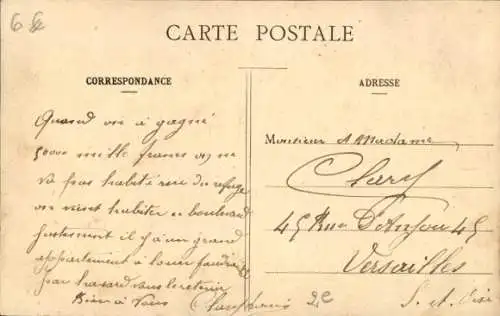 6 €
CARTE POSTALE
CORRESPONDANCE
Quand on a gagné
50000 mille francs on ne
va pas habité rue du refuge
on vient habiter en boulevard
justement il y a un grand
appartement à louer faudrait
par hasard vous le retenir
Bien à Vous
ADRESSE
Monsieur et Madame
Clary
45 Rue D'Anjou 45
Versailles
S. et Oise
2€